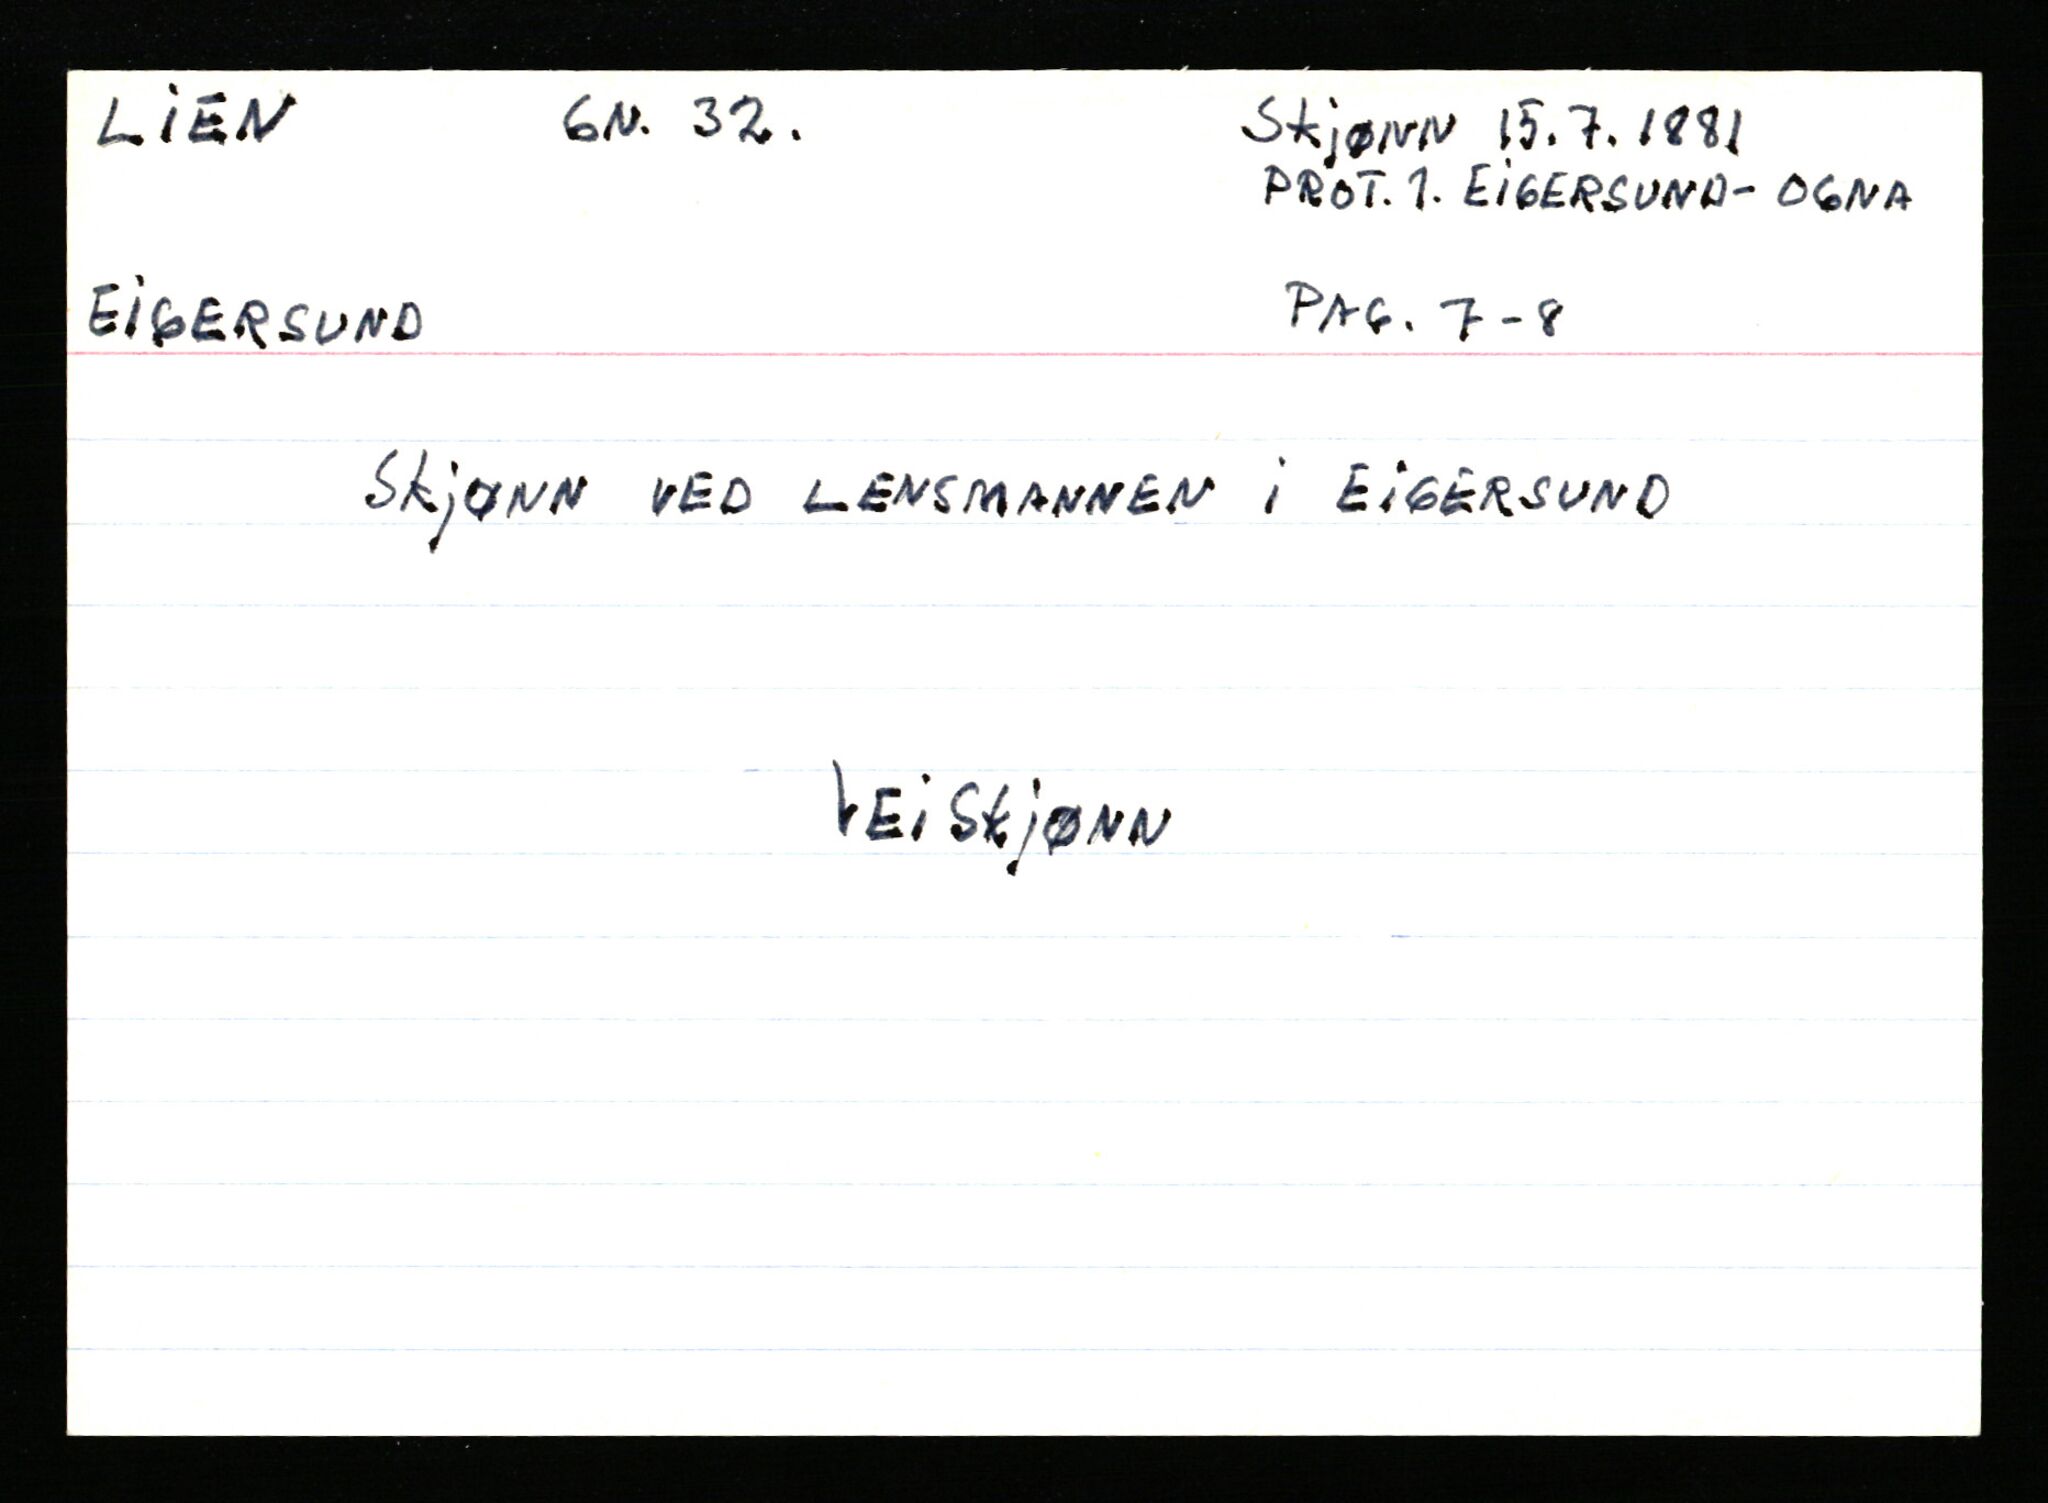 LIEN GN. 32. Skjønn 15.7.1881
PROT. 1. EIGERSUND-OGNA
EIGERSUND PAG. 7-8
Skjønn VED LENSMANNEN i EIGERSUND
VEISkjønn